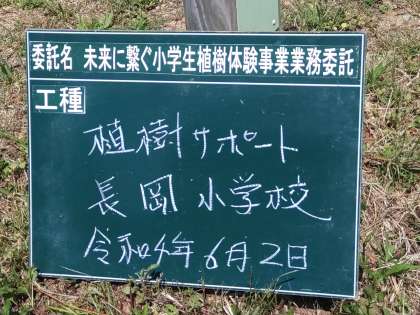 委託名 未来に繋ぐ小学生植樹体験事業業務委託
工種
植樹サポート
長岡小学校
令和4年6月2日